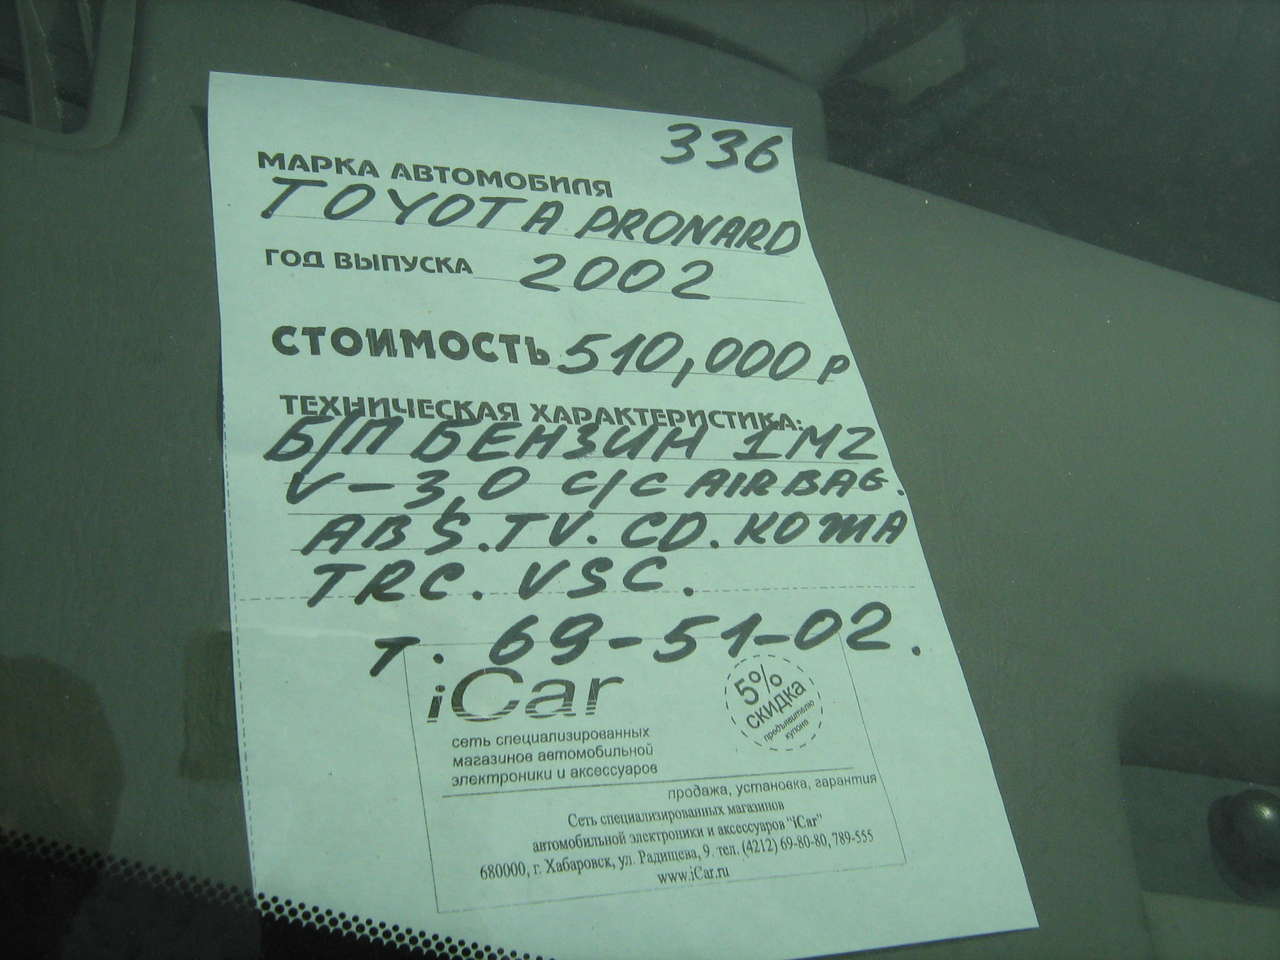 336
МАРКА АВТОМОБИЛЯ
TOYOTA PRONARD
ГОД ВЫПУСКА 2002
СТОИМОСТЬ 510,000 р
ТЕХНИЧЕСКАЯ ХАРАКТЕРИСТИКА:
Б/П БЕНЗИН 1MZ
V-3,0 С/С AIRBAG.
ABS.TV.CD.КОЖА
TRC.VSC.
т. 69-51-02.
iCar
5%
СКИДКА
предъявителю
купона
сеть специализированных
магазинов автомобильной
электроники и аксессуаров
продажа, установка, гарантия
Сеть специализированных магазинов
автомобильной электроники и аксессуаров "iCar"
680000, г. Хабаровск, ул. Радищева, 9. тел. (4212) 69-80-80, 789-555
www.iCar.ru